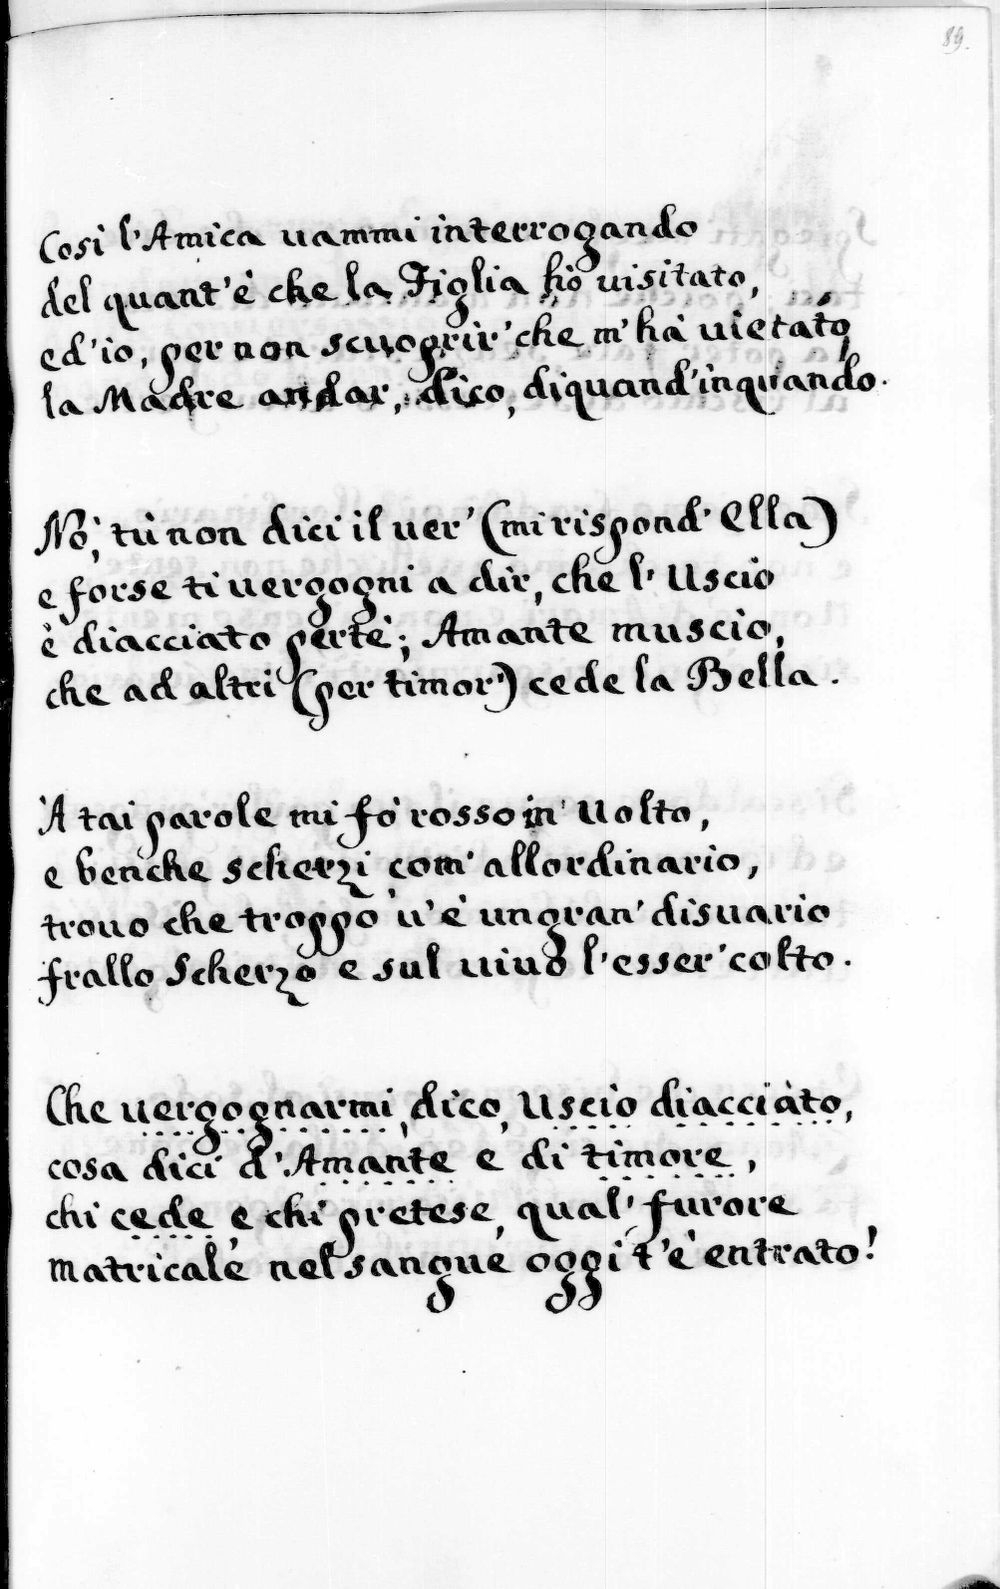 89.
Così l'Amica uammi interrogando
del quant'è che la Figlia hò uisitato,
ed'io, per non scuoprir' che m'hà uietato
la Madre andar, dico, diquand'inquando.
Nò, tù non dici il uer' (mi rispond' Ella)
e forse ti uergogni a dir, che l' Uscio
è diacciato pertè; Amante muscio,
che ad altri (per timor') cede la Bella.
A tai parole mi fò rosso in' Uolto,
e benche scherzi com' allordinario,
trouo che troppo u'è un gran' disuario
frallo Scherzo e sul uiuo l'esser' colto.
Che uergognarmi, dico, Uscio diacciato,
cosa dici d'Amante e di timore,
chi cede e chi pretese, qual' furore
matricale nel sangue oggi t'è entrato!